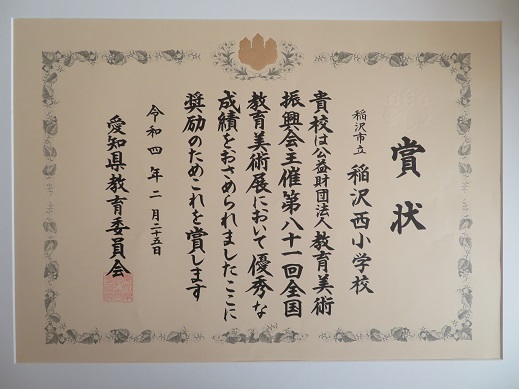 賞状
稲沢市立 稲沢西小学校
貴校は公益財団法人教育美術
振興会主催第八十一回全国
教育美術展において優秀な
成績をおさめられましたここに
奨励のためこれを賞します
令和四年二月二十五日
愛知県教育委員会